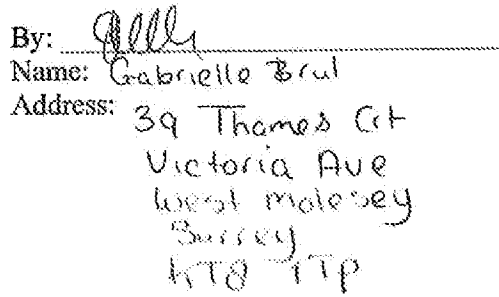 By:
Name: Gabrielle Brul
Address: 39 Thames Crt
Victoria Ave
West Molesey
Surrey
KT8 1TP